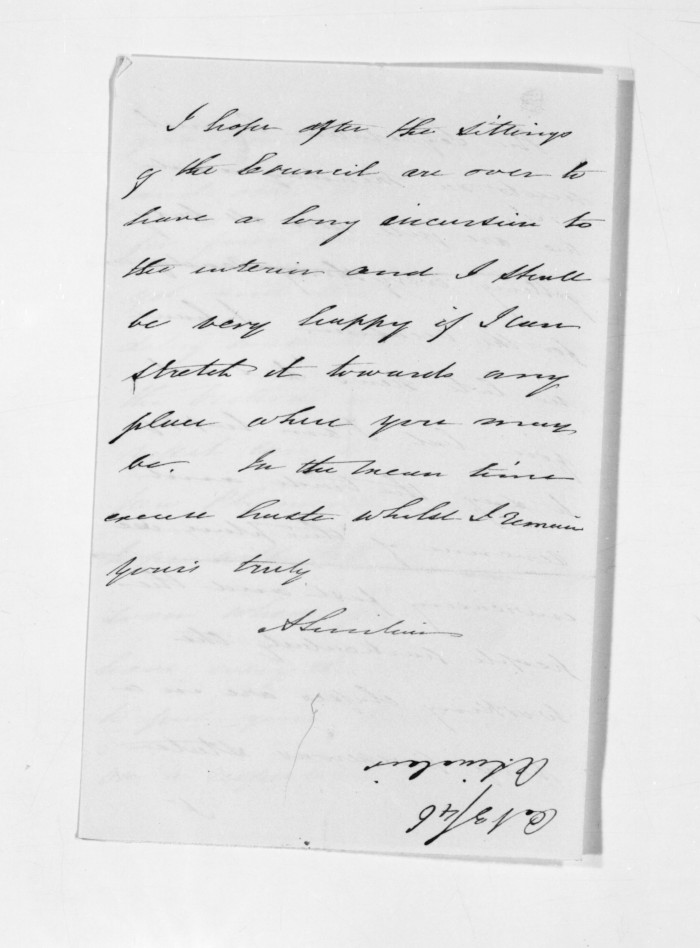 I hope after the sittings
of the Council are over to
have a long incursion to
the interior and I shall
be very happy if I can
stretch it towards any
place where you may
be. In the mean time
excuse haste whilst I remain
yours truly
ASinclair
A Sinclair
Oct 3/46